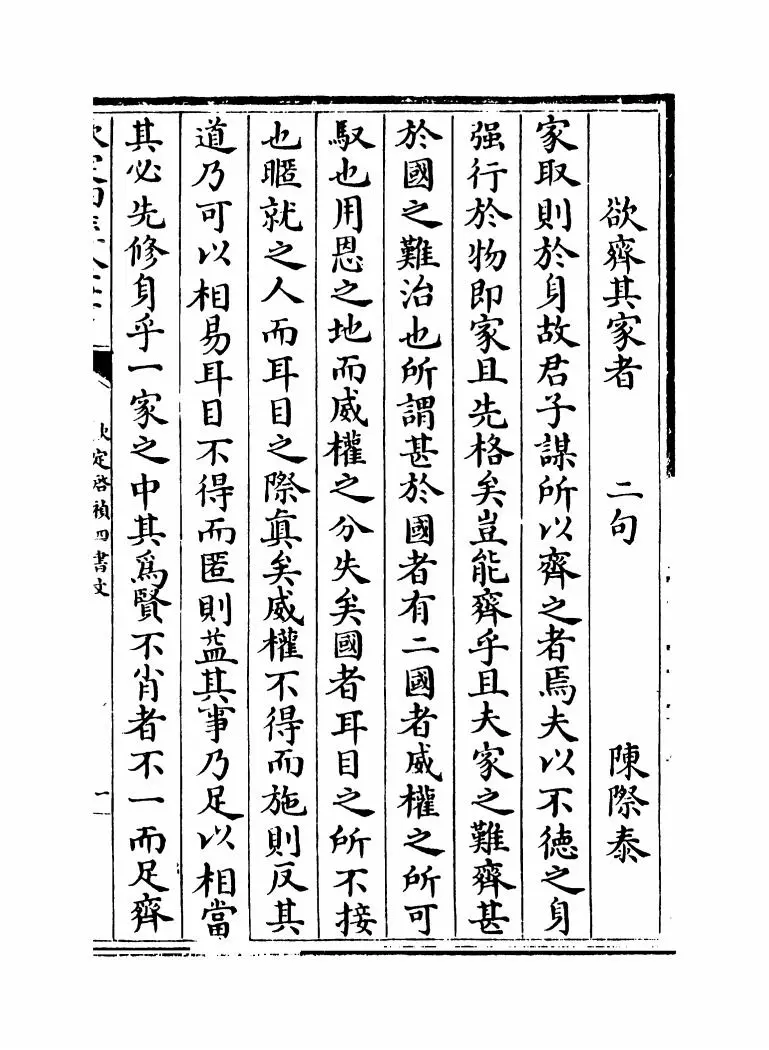 欲齊其家者　二句　陳際泰
家取則於身故君子謀所以齊之者焉夫以不德之身
强行於物即家且先格矣豈能齊乎且夫家之難齊甚
於國之難治也所謂甚於國者有二國者威權之所可
馭也用恩之地而威權之分失矣國者耳目之所不接
也暱就之人而耳目之際真矣威權不得而施則反其
道乃可以相易耳目不得而匿則葢其事乃足以相當
其必先修身乎一家之中其爲賢不肖者不一而足齊
欽定啓禎四書文
一